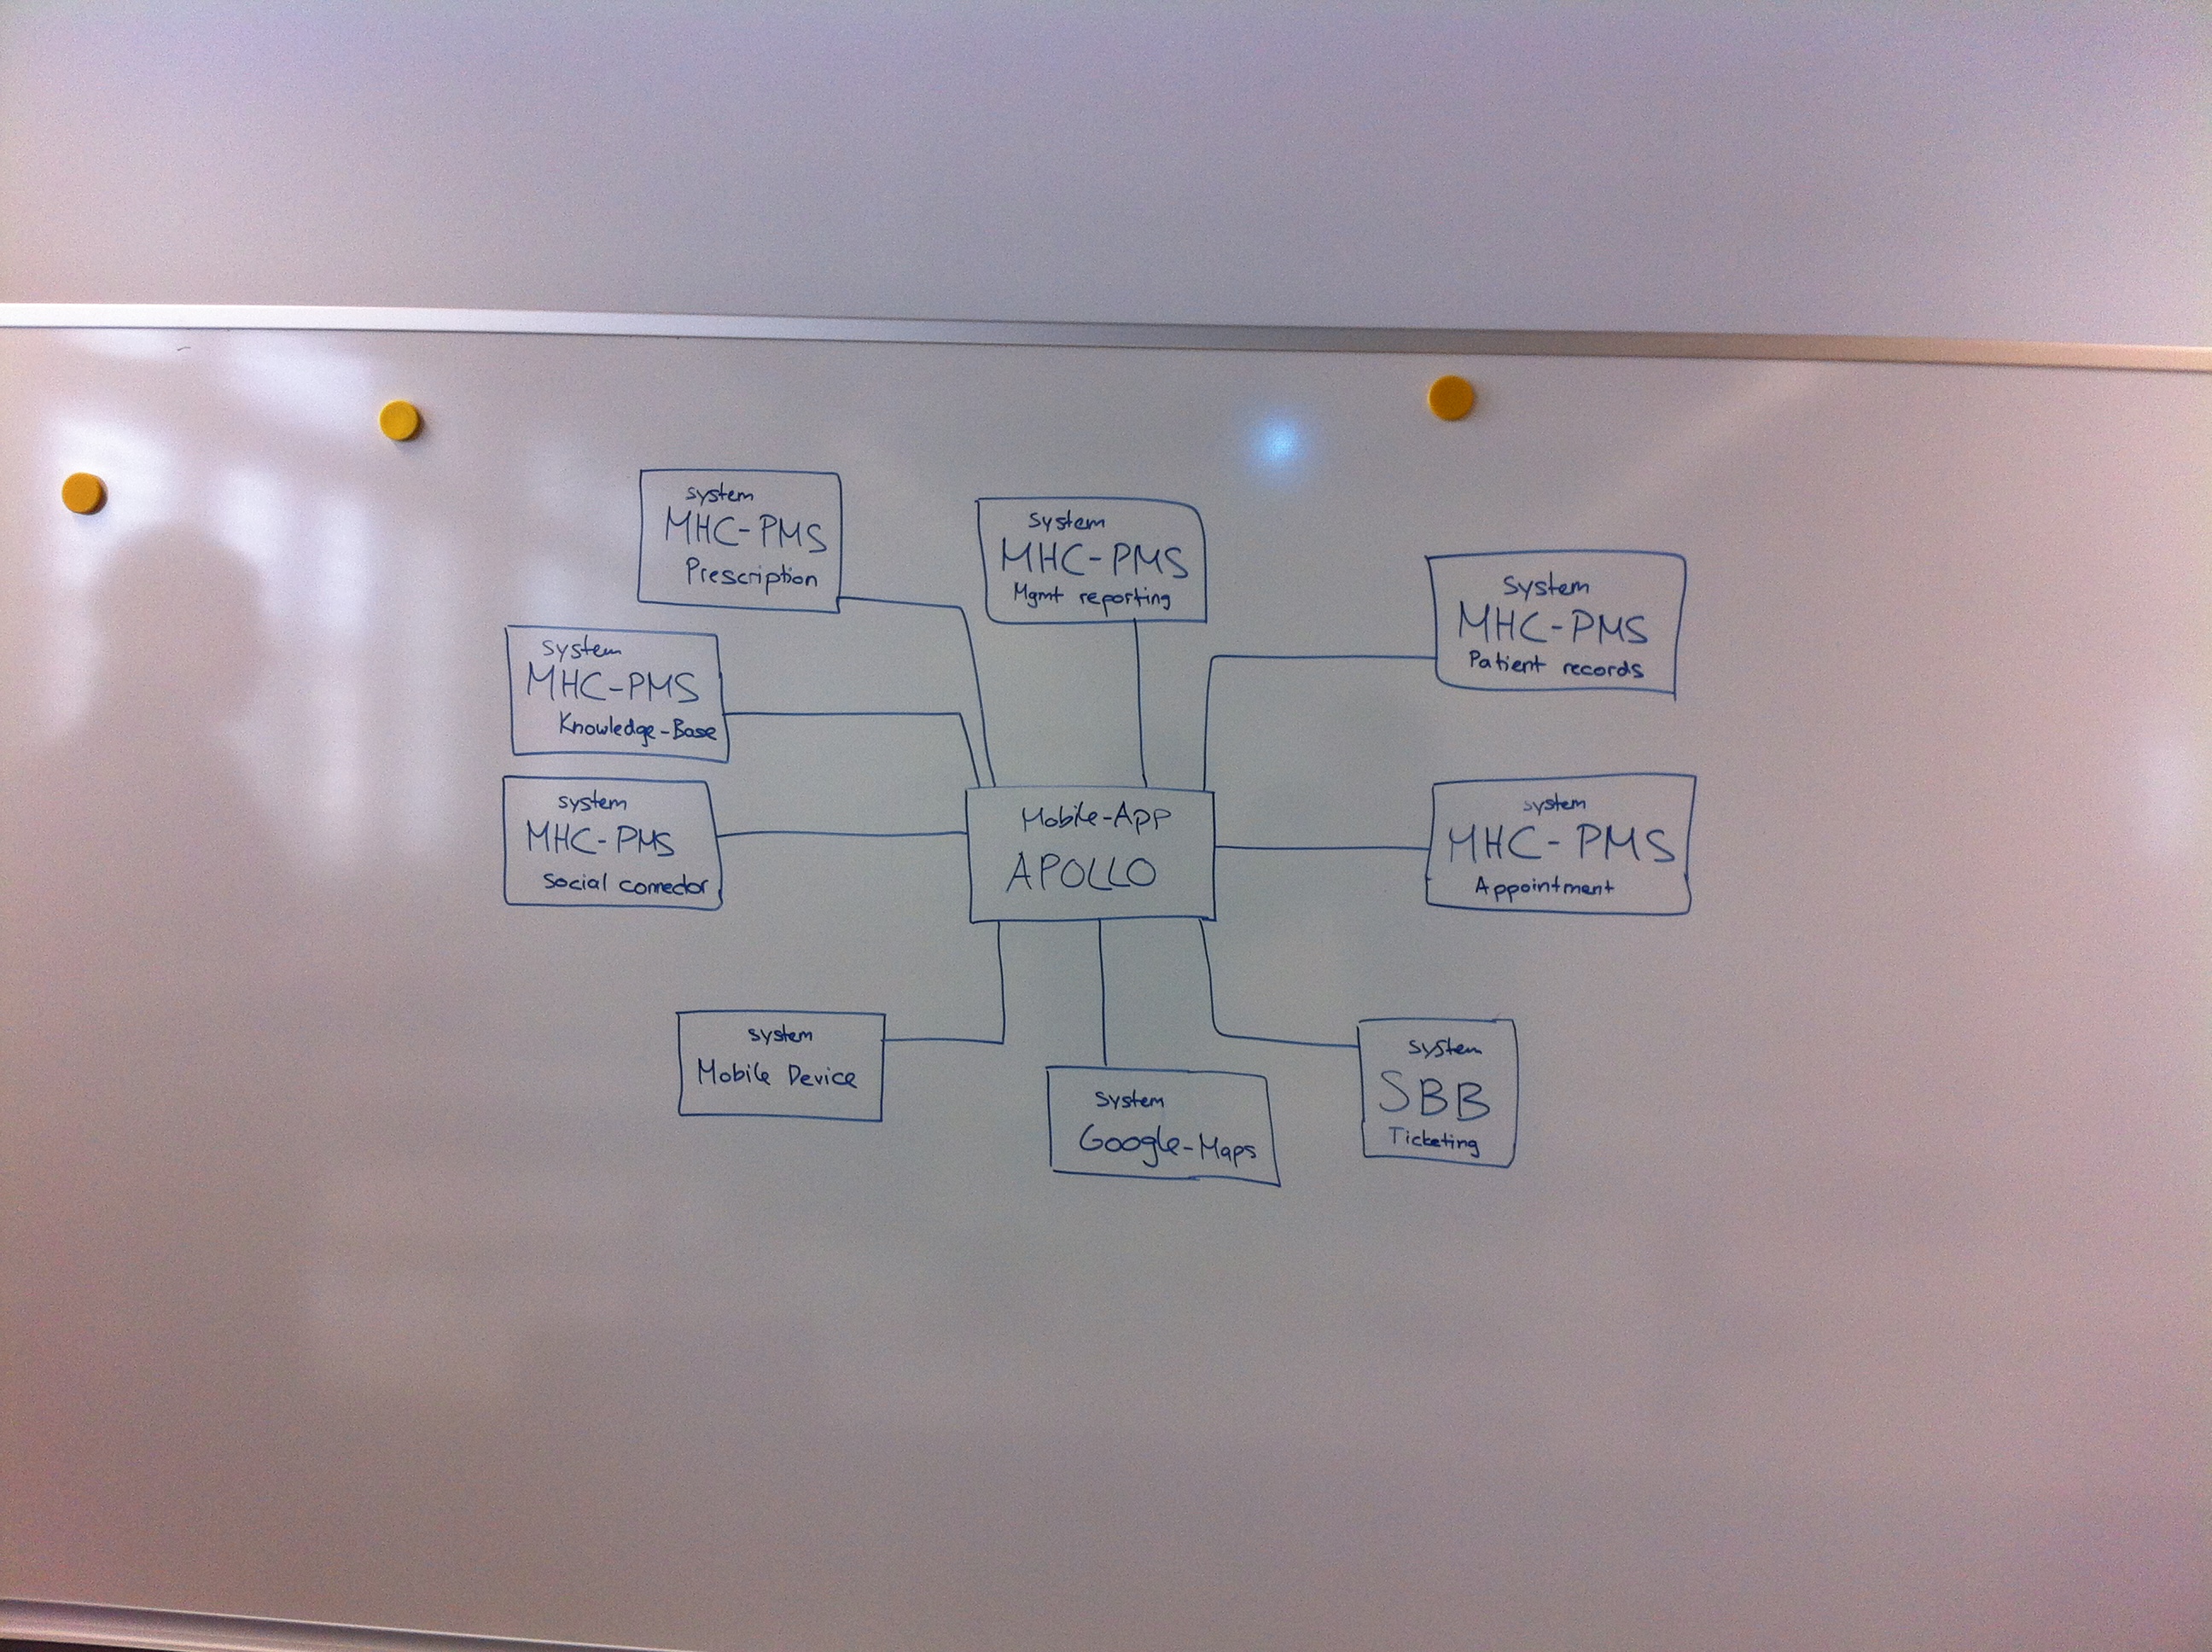 system
MHC-PMS
Prescription
system
MHC-PMS
Mgmt reporting
system
MHC-PMS
Patient records
system
MHC-PMS
Knowledge-Base
system
MHC-PMS
Social connector
Mobile-App
APOLLO
system
MHC-PMS
Appointment
system
Mobile Device
system
Google-Maps
system
SBB
Ticketing